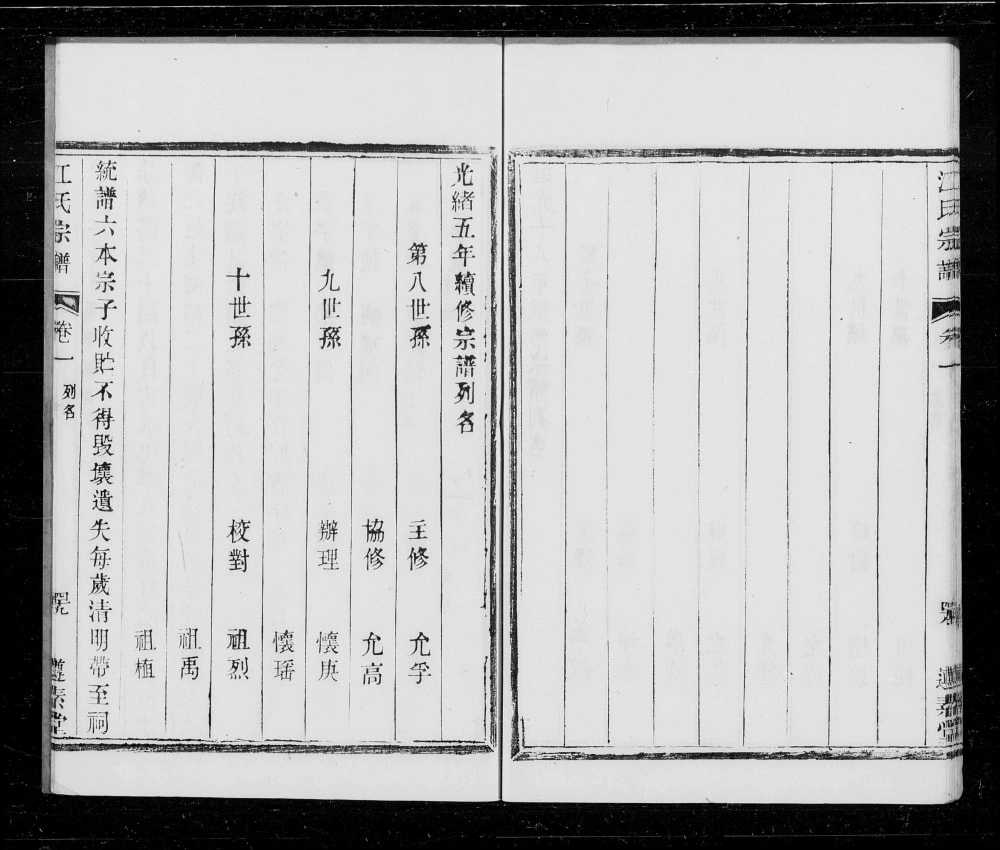 江氏宗譜 卷一
光緒五年續修宗譜列名
第八世孫 主修 允孚
協修 允高
九世孫 辦理 懷庚
懷瑶
十世孫 校對 祖烈
祖禹
祖植
統譜六本宗子收貯不得毀壞遺失每歲清明帶至祠
江氏宗譜 卷一 列名